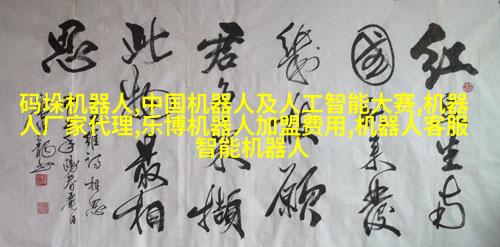 码垛机器人,中国机器人及人工智能大赛,机器
人厂家代理,乐博机器人加盟费用,机器人客服
智能机器人
红生南
國来發
幾願
君采撷
此物最相
思